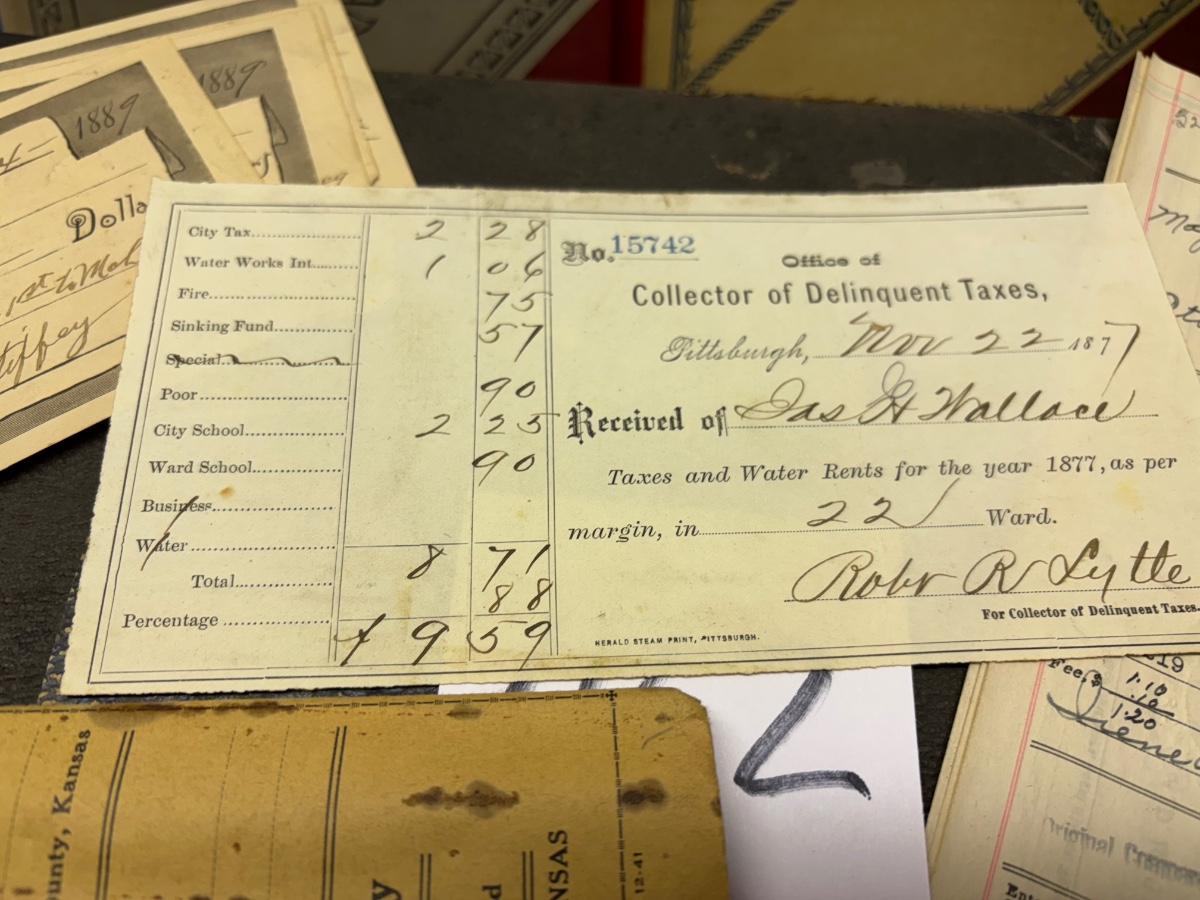 1889
1889
Dolla
City Tax 2 28
Water Works Int. 1 06
Fire 75
Sinking Fund 57
Special
Poor 90
City School 2 25
Ward School 90
Business
Water
Total 8 71
Percentage 88
9 59
No. 15742
Office of
Collector of Delinquent Taxes,
Pittsburgh, Nov 22 1877
Received of Jas H Wallace
Taxes and Water Rents for the year 1877, as per
margin, in 22 Ward.
Robt R Lytle
For Collector of Delinquent Taxes.
HERALD STEAM PRINT, PITTSBURGH.
ounty, Kansas
NSAS
12-41
2
Fee, $ 1.10
.10
1.20